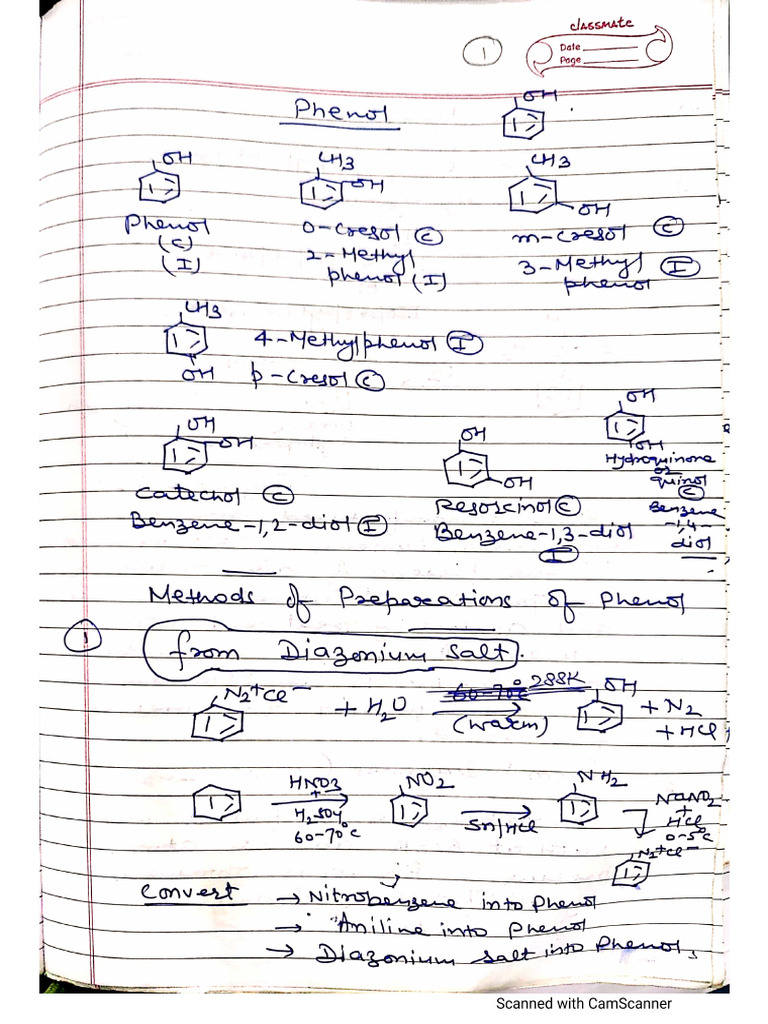 classmate
Date
Page
1
Phenol
OH
OH
CH3
OH
CH3
OH
Phenol
(C)
(I)
O-Cresol (C)
2-Methyl
phenol (I)
m-cresol (C)
3-Methyl (I)
phenol
CH3
OH
4-Methylphenol (I)
p-Cresol (C)
OH
OH
Catechol (C)
Benzene-1,2-diol (I)
OH
OH
Resorcinol (C)
Benzene-1,3-diol
(I)
OH
OH
Hydroquinone
or
quinol
(C)
Benzene
-1,4-
diol
Methods of Preparations of Phenol
1
from Diazonium salt.
N2+Cl- + H2O 60-70°C 288K (warm) OH + N2 + HCl
HNO3 + H2SO4 60-70°C NO2 Sn/HCl NH2 NaNO2 + HCl 0-5°C
N2+Cl-
Convert → Nitrobenzene into phenol
→ Aniline into Phenol
→ Diazonium salt into Phenol,
Scanned with CamScanner